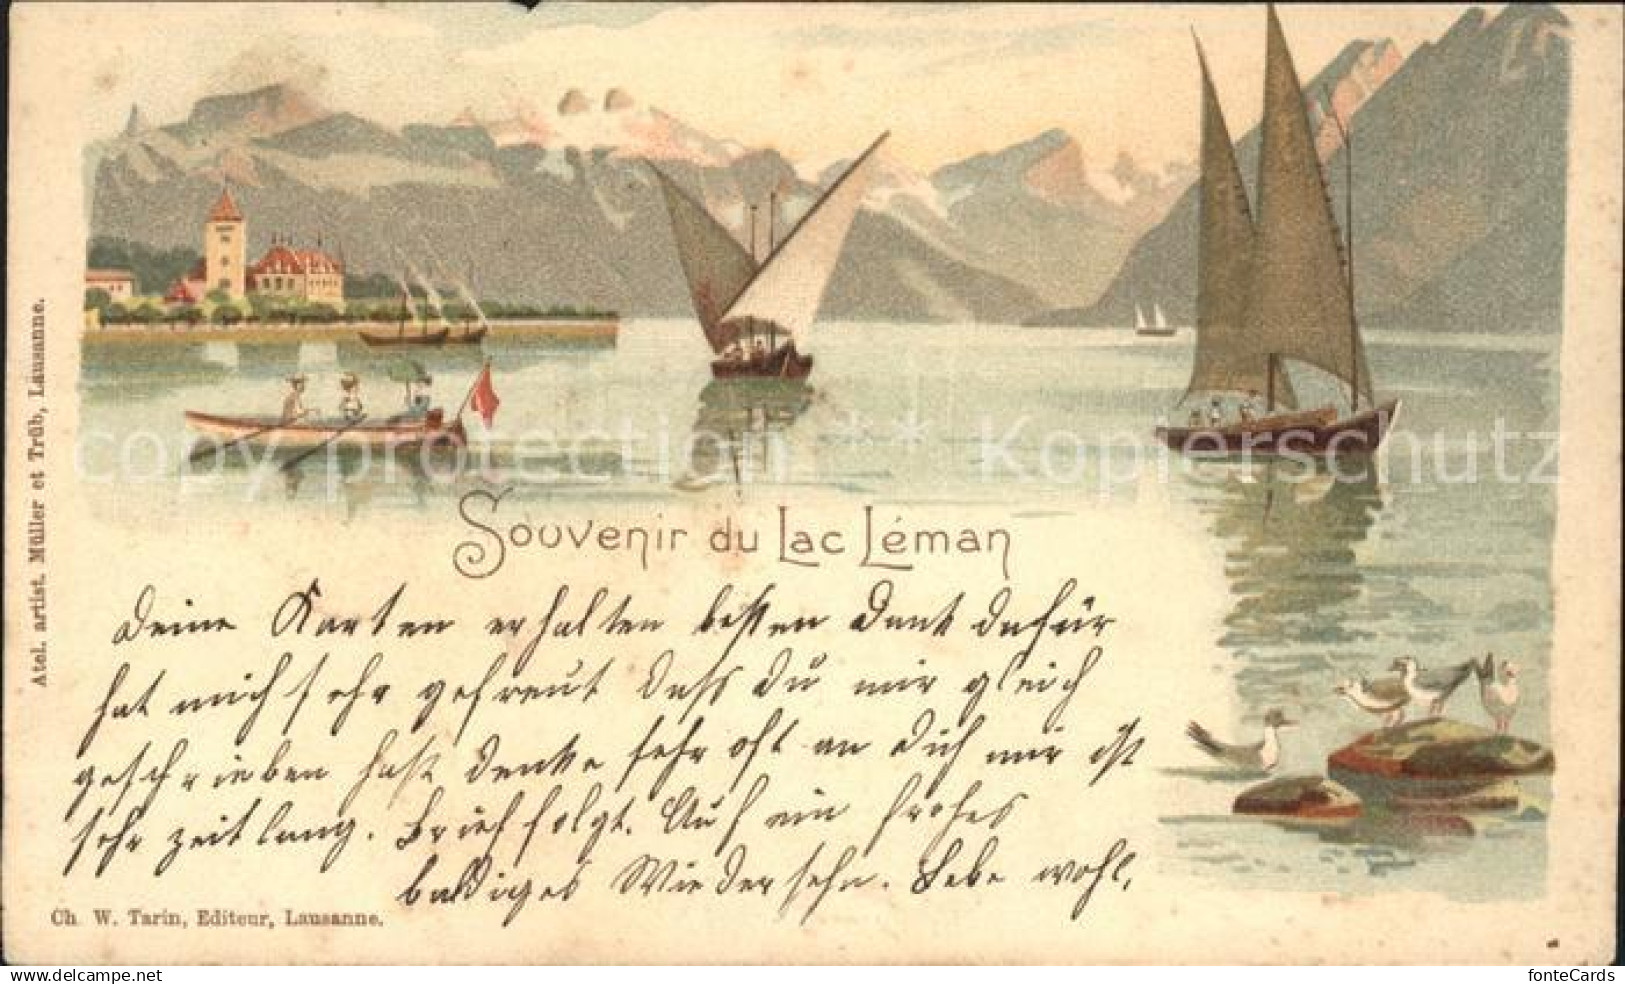 Souvenir du Lac Léman
Deine Karten erhalten besten Dank dafür
hat mich sehr gefreut dass Du mir gleich
geschrieben hast denke sehr oft an Dich mir ist
sehr zeitlang. Brief folgt. Auf ein frohes
baldiges Wiedersehn. Lebe wohl.
Atel. artist. Müller et Trüb, Lausanne.
Ch. W. Tarin, Editeur, Lausanne.
copy protection ** Kopierschutz
delcampe.net
fonteCards